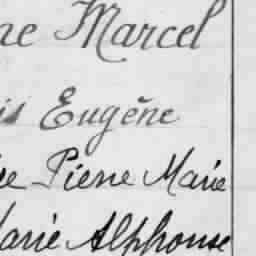 ne Marcel
is Eugène
ie Pierre Marie
Marie Alphonse